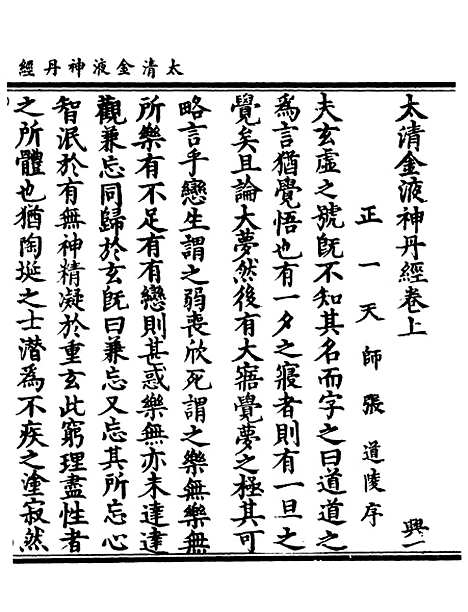 太清金液神丹經
太清金液神丹經卷上　興一
正一天師張道陵序
夫玄虛之號旣不知其名而字之曰道道之
爲言猶覺悟也有一夕之寢者則有一旦之
覺矣且論大夢然後有大寤覺夢之極其可
略言乎戀生謂之弱喪欣死謂之樂無樂無
所樂有不足有有戀則甚惑樂無亦未達達
觀兼忘同歸於玄旣曰兼忘又忘其所忘心
智泯於有無神精凝於重玄此窮理盡性者
之所體也猶陶埏之士潜爲不疾之塗寂然